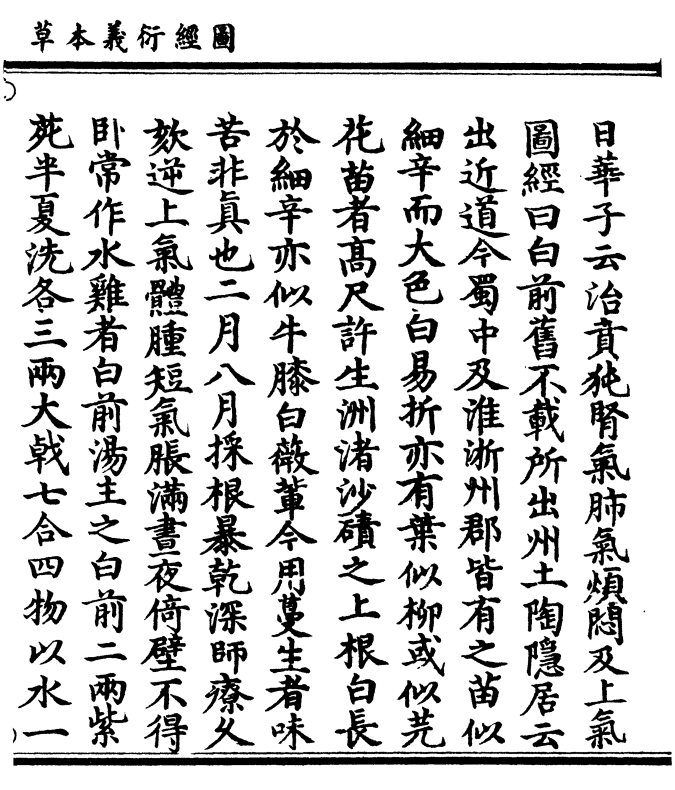 圖經衍義本草
日華子云治賁㹠腎氣肺氣煩悶及上氣
圖經曰白前舊不載所出州土陶隱居云
出近道今蜀中及淮浙州郡皆有之苗似
細辛而大色白易折亦有葉似柳或似芫
花苗者高尺許生洲渚沙磧之上根白長
於細辛亦似牛膝白薇輩今用蔓生者味
苦非真也二月八月採根暴乾深師療久
欬逆上氣體腫短氣脹滿晝夜倚壁不得
臥常作水雞者白前湯主之白前二兩紫
菀半夏洗各三兩大戟七合四物以水一